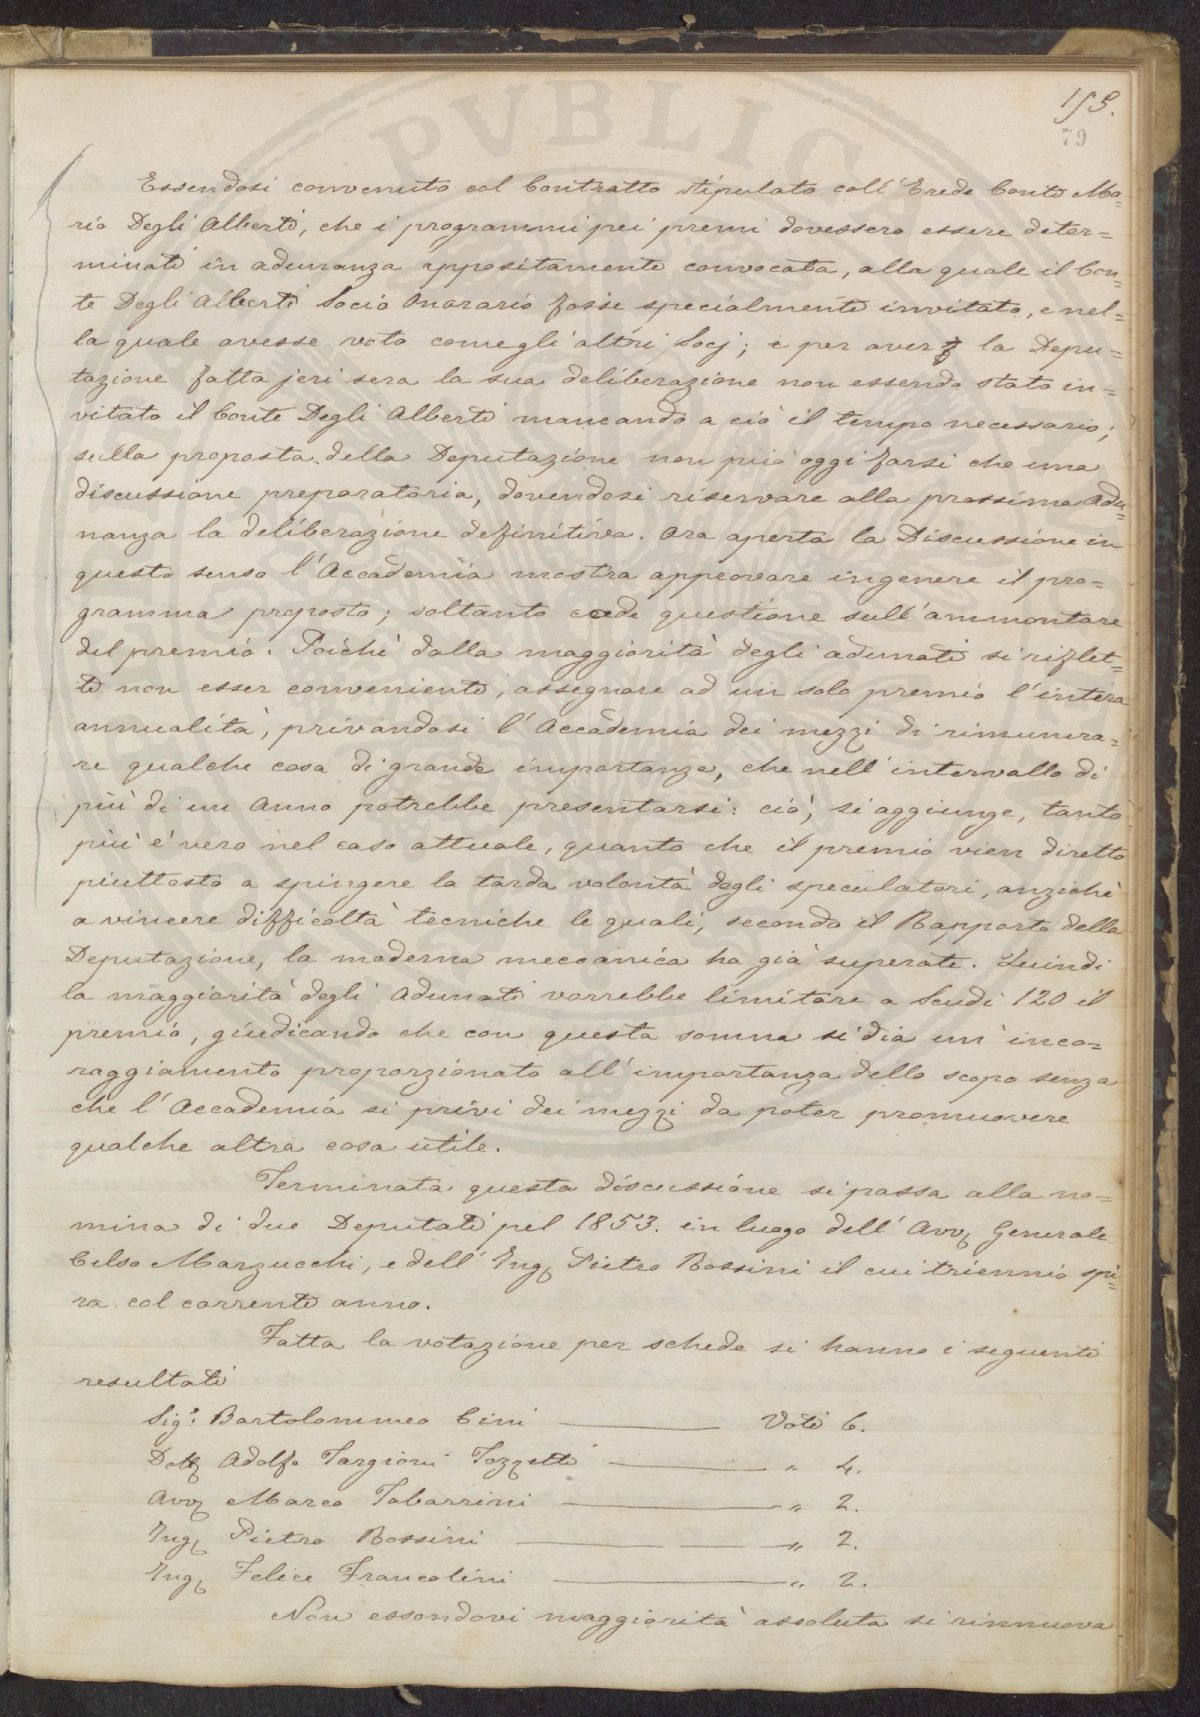 153.
79
PVBLICA
Essendosi convenuto col Contratto stipulato coll'Erede Conte Ma=
rio Degli Alberti, che i programmi pei premi dovessero essere deter=
minati in adunanza appositamente convocata, alla quale il Con=
te Degli Alberti Socio Onorario fosse specialmente invitato, e nel=
la quale avesse voto come gli altri Socj; e per aver la Depu=
tazione fatta jeri sera la sua deliberazione non essendo stato in=
vitato il Conte Degli Alberti mancando a ciò il tempo necessario;
sulla proposta della Deputazione non può oggi farsi che una
discussione preparatoria, dovendosi riservare alla prossima Adu=
nanza la deliberazione definitiva. Ora aperta la Discussione in
questo senso l'Accademia mostra approvare in genere il pro=
gramma proposto; soltanto cade questione sull'ammontare
del premio. Poichè dalla maggiorità degli adunati si riflet=
te non esser conveniente, assegnare ad un solo premio l'intera
annualità, privandosi l'Accademia dei mezzi di rimunera=
re qualche cosa di grande importanza, che nell'intervallo di
più di un Anno potrebbe presentarsi: ciò, si aggiunge, tanto
più è vero nel caso attuale, quanto che il premio vien diretto
piuttosto a spingere la tarda volontà degli speculatori, anzichè
a vincere difficoltà tecniche le quali, secondo il Rapporto della
Deputazione, la moderna meccanica ha già superate. Quindi
la maggiorità degli Adunati vorrebbe limitare a Scudi 120 il
premio, giudicando che con questa somma si dia un'inco=
raggiamento proporzionato all'importanza dello scopo senza
che l'Accademia si privi dei mezzi da poter promuovere
qualche altra cosa utile.
Terminata questa discussione si passa alla no=
mina di due Deputati pel 1853. in luogo dell'Avv. Generale
Celso Marzucchi, e dell'Ing. Pietro Rossini il cui triennio spi=
ra col corrente anno.
Fatta la votazione per schede si hanno i seguenti
resultati
Sig.r Bartolommeo Cini ——— Voti 6.
Dott. Adolfo Targioni Tozzetti ——— " 4.
Avv. Marco Tabarrini ——— " 2.
Ing. Pietro Rossini ——— " 2.
Ing. Felice Francolini ——— " 2.
Non essendovi maggiorità assoluta si rinnuova